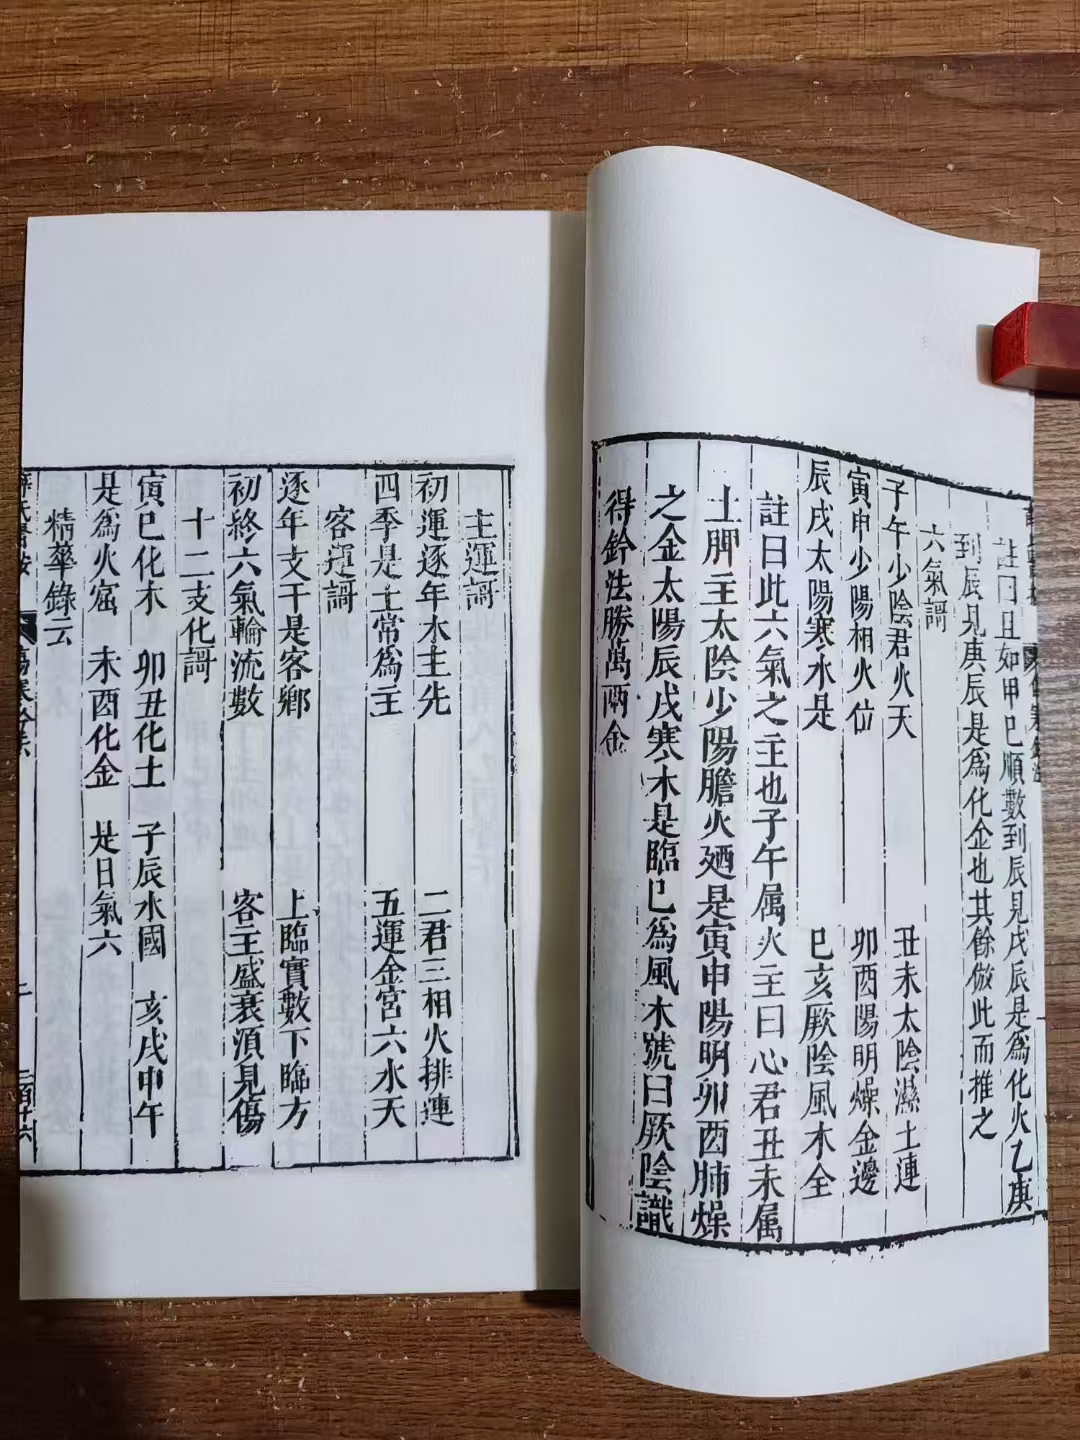 註曰且如甲巳順數到辰見戊辰是為化火乙庚
到辰見庚辰是為化金也其餘倣此而推之
六氣謌
子午少陰君火天 丑未太陰濕土連
寅申少陽相火位 卯酉陽明燥金邊
辰戌太陽寒水是 巳亥厥陰風木全
註曰此六氣之主也子午属火主曰心君丑未属
土脾主太陰少陽膽火廼是寅申陽明卯酉肺燥
之金太陽辰戌寒木是臨巳為風木號曰厥陰識
得鈐法勝萬兩金
主運謌
初運逐年木主先 二君三相火排連
四季是土常為主 五運金宮六水天
客運謌
逐年支干是客鄉 上臨實數下臨方
初終六氣輪流數 客主盛衰須見傷
十二支化謌
寅巳化木 卯丑化土 子辰水國 亥戌申午
是為火窟 未酉化金 是日氣六
精華錄云